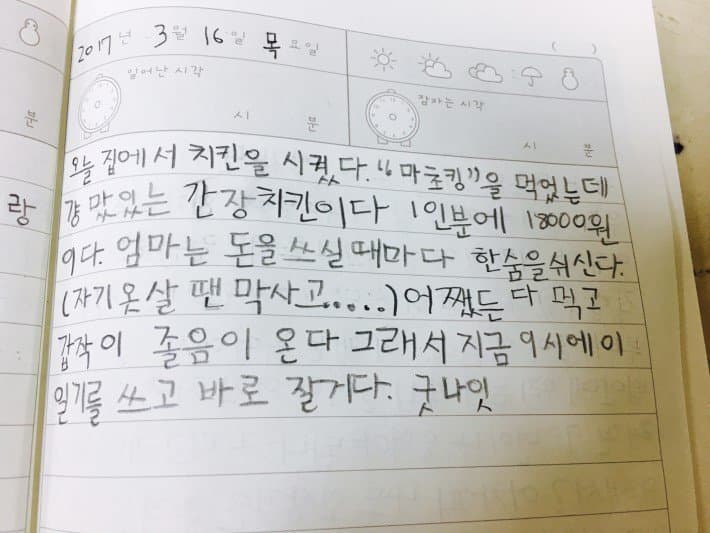 2017년 3월 16일 목요일 ( )
일어난 시각
시 분
잠자는 시각
시 분
분
랑
오늘 집에서 치킨을 시켰다. "마초킹"을 먹었는데
걍 맛있는 간장치킨이다 1인분에 18000원
이다. 엄마는 돈을 쓰실때마다 한숨을쉬신다.
(자기옷살 땐 막사고.....)어쨌든 다 먹고
갑작이 졸음이 온다 그래서 지금 9시에 이
일기를 쓰고 바로 잘거다. 굿나잇